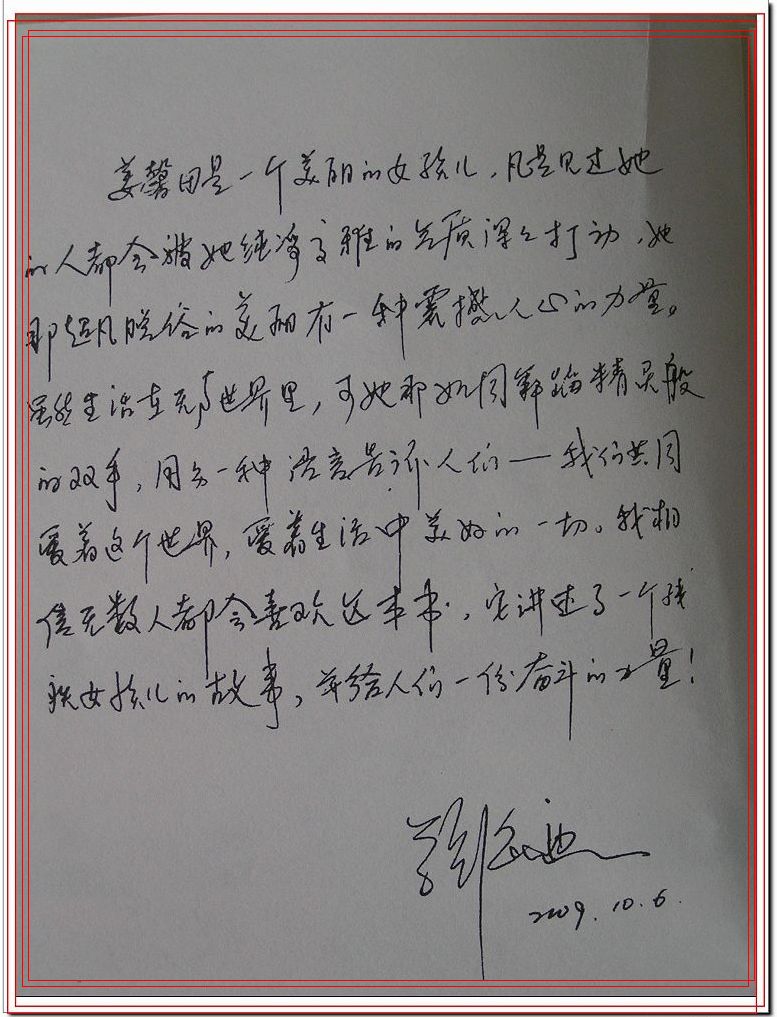 姜馨田是一个美丽的女孩儿，凡是见过她
的人都会被她纯净高雅的气质深深打动，她
那超凡脱俗的美丽有一种震撼人心的力量。
虽然生活在无声世界里，可她那如同舞蹈精灵般
的双手，用另一种语言告诉人们——我们共同
爱着这个世界，爱着生活中美好的一切。我相
信无数人都会喜欢这本书，它讲述了一个残
疾女孩儿的故事，并给人们一份奋斗的力量！
2009.10.6.